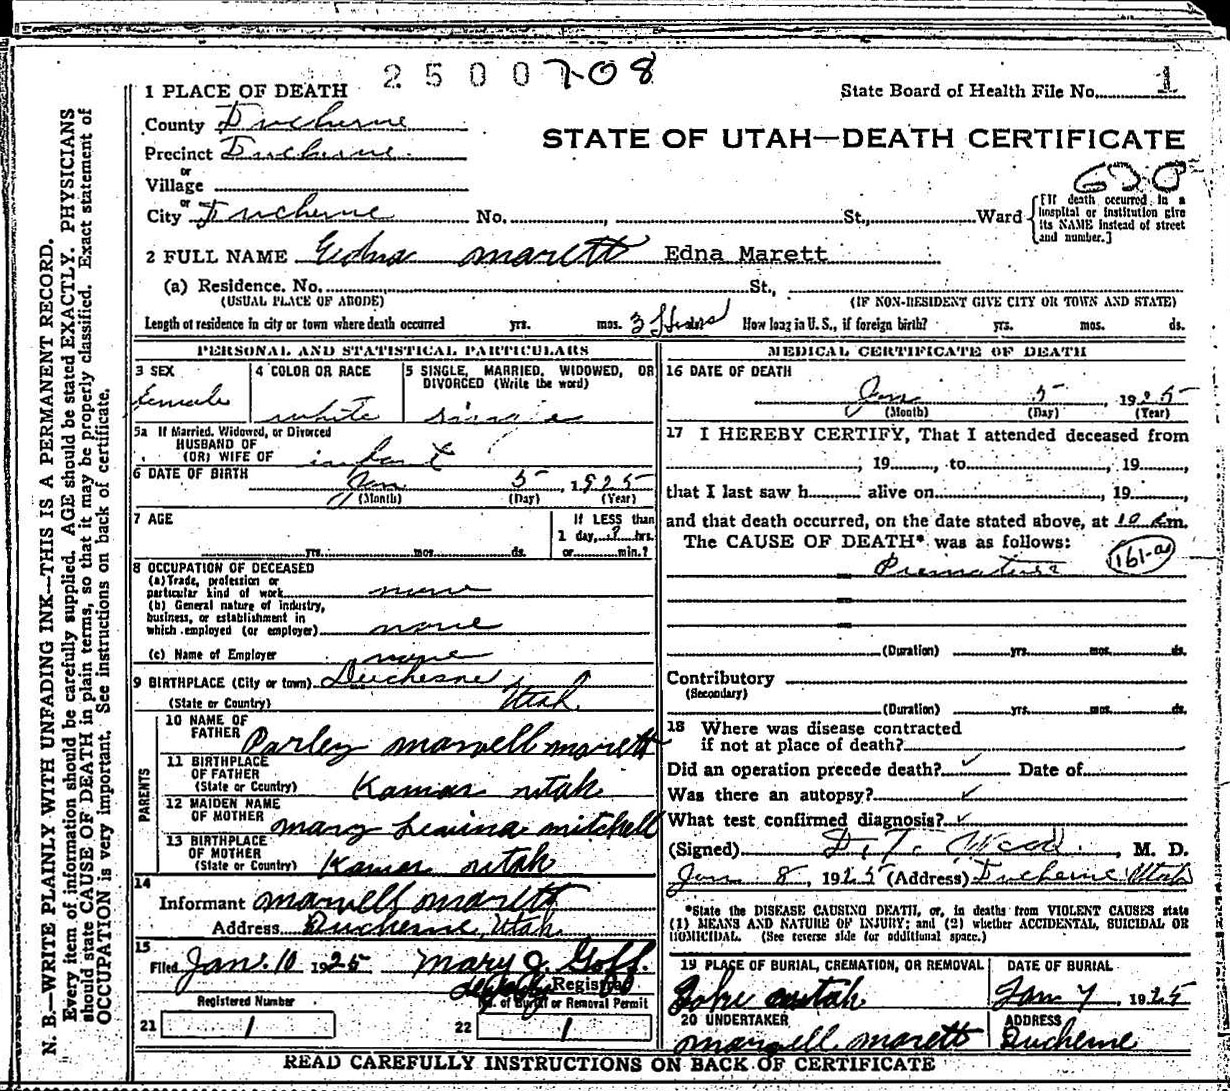 2500708
1 PLACE OF DEATH
State Board of Health File No. 1
County Duchesne
STATE OF UTAH—DEATH CERTIFICATE
Precinct Duchesne
or
Village
or
City Duchesne No. , St., Ward
[If death occurred in a
hospital or institution give
its NAME instead of street
and number.]
2 FULL NAME Edna Marett Edna Marett
(a) Residence. No. St.,
(USUAL PLACE OF ABODE) (IF NON-RESIDENT GIVE CITY OR TOWN AND STATE)
Length of residence in city or town where death occurred yrs. mos. 3 Hours How long in U. S., if foreign birth? yrs. mos. ds.
PERSONAL AND STATISTICAL PARTICULARS
3 SEX
female
4 COLOR OR RACE
white
5 SINGLE, MARRIED, WIDOWED, OR
DIVORCED (Write the word)
single
5a If Married, Widowed, or Divorced
HUSBAND OF
(OR) WIFE OF infant
6 DATE OF BIRTH Jan 5, 1925
(Month) (Day) (Year)
7 AGE
yrs. mos. ds.
If LESS than
1 day, hrs.
or min.?
8 OCCUPATION OF DECEASED
(a) Trade, profession or
particular kind of work none
(b) General nature of industry,
business, or establishment in
which employed (or employer) none
(c) Name of Employer none
9 BIRTHPLACE (City or town) Duchesne
(State or Country) Utah
PARENTS
10 NAME OF
FATHER Parley Marvell Marett
11 BIRTHPLACE
OF FATHER
(State or Country) Kamas Utah
12 MAIDEN NAME
OF MOTHER Mary Mitchell
13 BIRTHPLACE
OF MOTHER
(State or Country) Kamas Utah
14
Informant Marvell Marett
Address Duchesne, Utah
15
Filed Jan. 10 1925 Mary J. Goff
deputy Registrar
Registered Number No. of Burial or Removal Permit
21 1 22 1
MEDICAL CERTIFICATE OF DEATH
16 DATE OF DEATH
Jan 5 1925
(Month) (Day) (Year)
17 I HEREBY CERTIFY, That I attended deceased from
, 19 , to , 19 ,
that I last saw h alive on , 19 ,
and that death occurred, on the date stated above, at 10 m.
The CAUSE OF DEATH* was as follows:
Premature 161-a
(Duration) yrs. mos. ds.
Contributory
(Secondary)
(Duration) yrs. mos. ds.
18 Where was disease contracted
if not at place of death?
Did an operation precede death? ✓ Date of
Was there an autopsy? ✓
What test confirmed diagnosis? ✓
(Signed) , M. D.
Jan 8, 1925 (Address) Duchesne Utah
*State the DISEASE CAUSING DEATH, or, in deaths from VIOLENT CAUSES state
(1) MEANS AND NATURE OF INJURY; and (2) whether ACCIDENTAL, SUICIDAL OR
HOMICIDAL. (See reverse side for additional space.)
19 PLACE OF BURIAL, CREMATION, OR REMOVAL
Utah
DATE OF BURIAL
Jan 7, 1925
20 UNDERTAKER
Marvell Marett
ADDRESS
Duchesne
READ CAREFULLY INSTRUCTIONS ON BACK OF CERTIFICATE
N. B.—WRITE PLAINLY WITH UNFADING INK—THIS IS A PERMANENT RECORD.
Every item of information should be carefully supplied. AGE should be stated EXACTLY. PHYSICIANS
should state CAUSE OF DEATH in plain terms, so that it may be properly classified. Exact statement of
OCCUPATION is very important. See instructions on back of certificate.